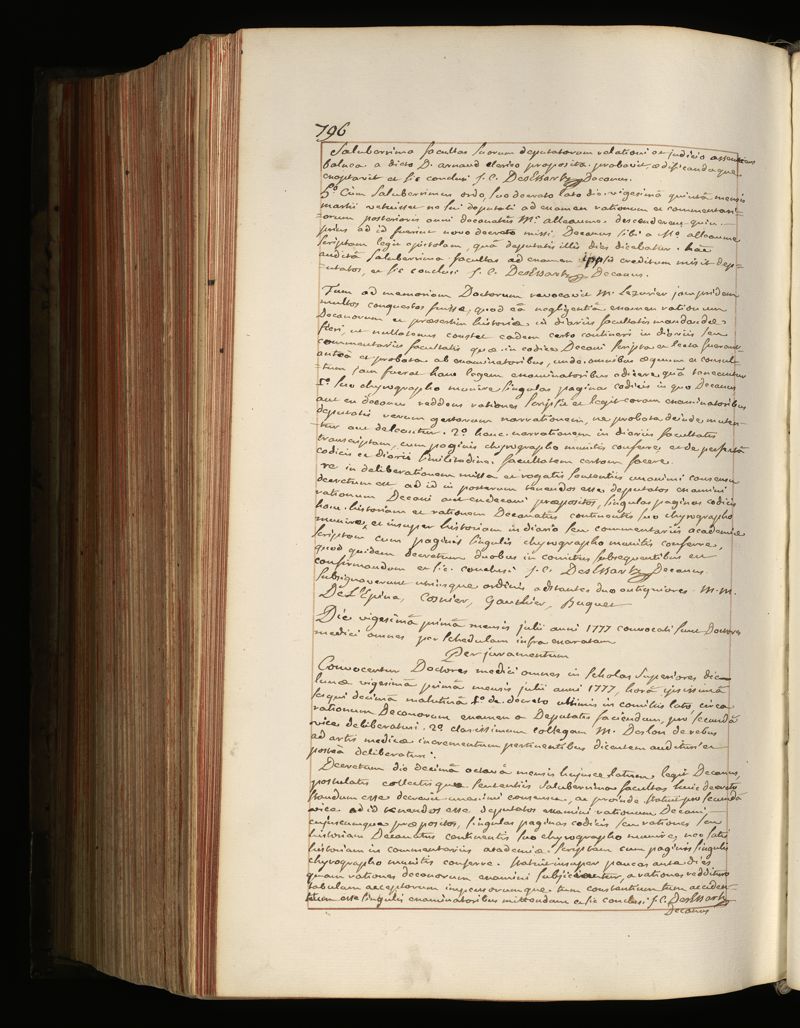 796
Saluberrima facultas suorum deputatorum relationi et judicio assentiens
balnea a dicto D. arnaud clerico proposita probavit, ædificandaque
exoptavit et sic conclusi J. C. DesEssartz Decanus.
5.º Cùm Saluberrimus ordo, suo decreto lato die vigesimâ quintâ mensis
martii vetuisset ne sui deputati ad examen rationum et commentari=
=orum posterioris anni decanatûs M.i alleaume descenderent quin
prius ad id fuerint novo decreto missi, Decanus sibi a M.o alleaume
scriptam legit epistolam, quâ deputatis illis dies dicebatur. hâc
auditâ Saluberrima facultas ad examen ipsis creditum misit dep=
=utatos, et sic conclusi J. C. DesEssartz Decanus.
Tum ad memoriam Doctorum revocavit M. Lezurier jampridem
multos conquestos fuisse, quod eâ negligentiâ examen rationum
Decanorum et præsertim historiæ in diariis facultatis mandandæ
fieri, ut nullatenus constet eadem certo contineri in diariis seu
commentariis facultatis quæ in codice Decani scripta et lecta fuerant
anteà et probata ab examinatoribus, unde omnibus æquum et consul=
=tum jam fuerat hanc legem examinatoribus adjicere, quâ teneantur
1.º suo chyrographo munire singulas paginas codicis in quo Decanus
aut ex decanus reddens rationes scripsit et legit coram examinatoribus
deputatis verum gestorum narrationem, ne probata deinde muten=
=tur aut deleantur. 2.º hanc narrationem in diariis facultatis
transcriptam, cum paginis chyrographo munitis conferre, et de perfectâ
codicis et diarii similitudine facultatem certam facere.
re in deliberationem missa et rogatis sententiis unanimi consensu
decretum est ad id in posterum tenendos esse deputatos examini
rationum Decani aut exdecani præpositos, singulas paginas codicis
hanc historiam et rationem Decanatus continentis suo chyrographo
munire, et insuper historiam in diario seu commentariis academiæ
scriptam cum paginis singulis chyrographo munitis conferre,
quod quidem decretum duobus in comitiis subsequentibus est
confirmandum et sic conclusi J. C. DesEssartz Decanus
Subsignaverunt utriusque ordinis adstantes duo antiquiores M.M.
De L'Epine, Cosnier, Gauthier, Buquet
Die vigesimâ primâ mensis julii anni 1777 convocati sunt Doctores
medici omnes per schedulam infra enarratam
Per juramentum
Convocentur Doctores medici omnes in scholas superiores die
lunæ vigesimâ primâ mensis julii anni 1777, horâ ipsissimâ
sesqui decimâ matutinâ 1.º de decreto ultimis in comitiis lato circa
rationum Decanorum examen a Deputatis faciendum, pro secundâ
vice deliberaturi. 2.º clarissimum collegam M. Deslon de rebus
ad artis medicæ incrementum pertinentibus dicentem audituri et
posteà deliberaturi.
Decretum die decimâ octavâ mensis hujusce latum legit Decanus,
postulatis collectisque sententiis Saluberrima facultas huic decreto
standum esse decrevit unanimi consensu, ac proinde statuit pro secundâ
vice ad id tenendos esse deputatos examini rationum Decani
cujuscumque præpositos, singulas paginas codicis seu rationes seu
historiam Decanatus continentis suo chyrographo munire, nec satis
historiam in commentariis academiæ scriptam cum paginis singulis
chyrographo munitis conferre. statuit insuper paucos ante dies
quam rationes decanorum examini subjiciantur, a rationes reddituro
tabulam acceptorum impensorumque tum constantium tum acciden=
talium esse singulis examinatoribus mittendam et sic conclusi J. C. DesEssartz
Decanus